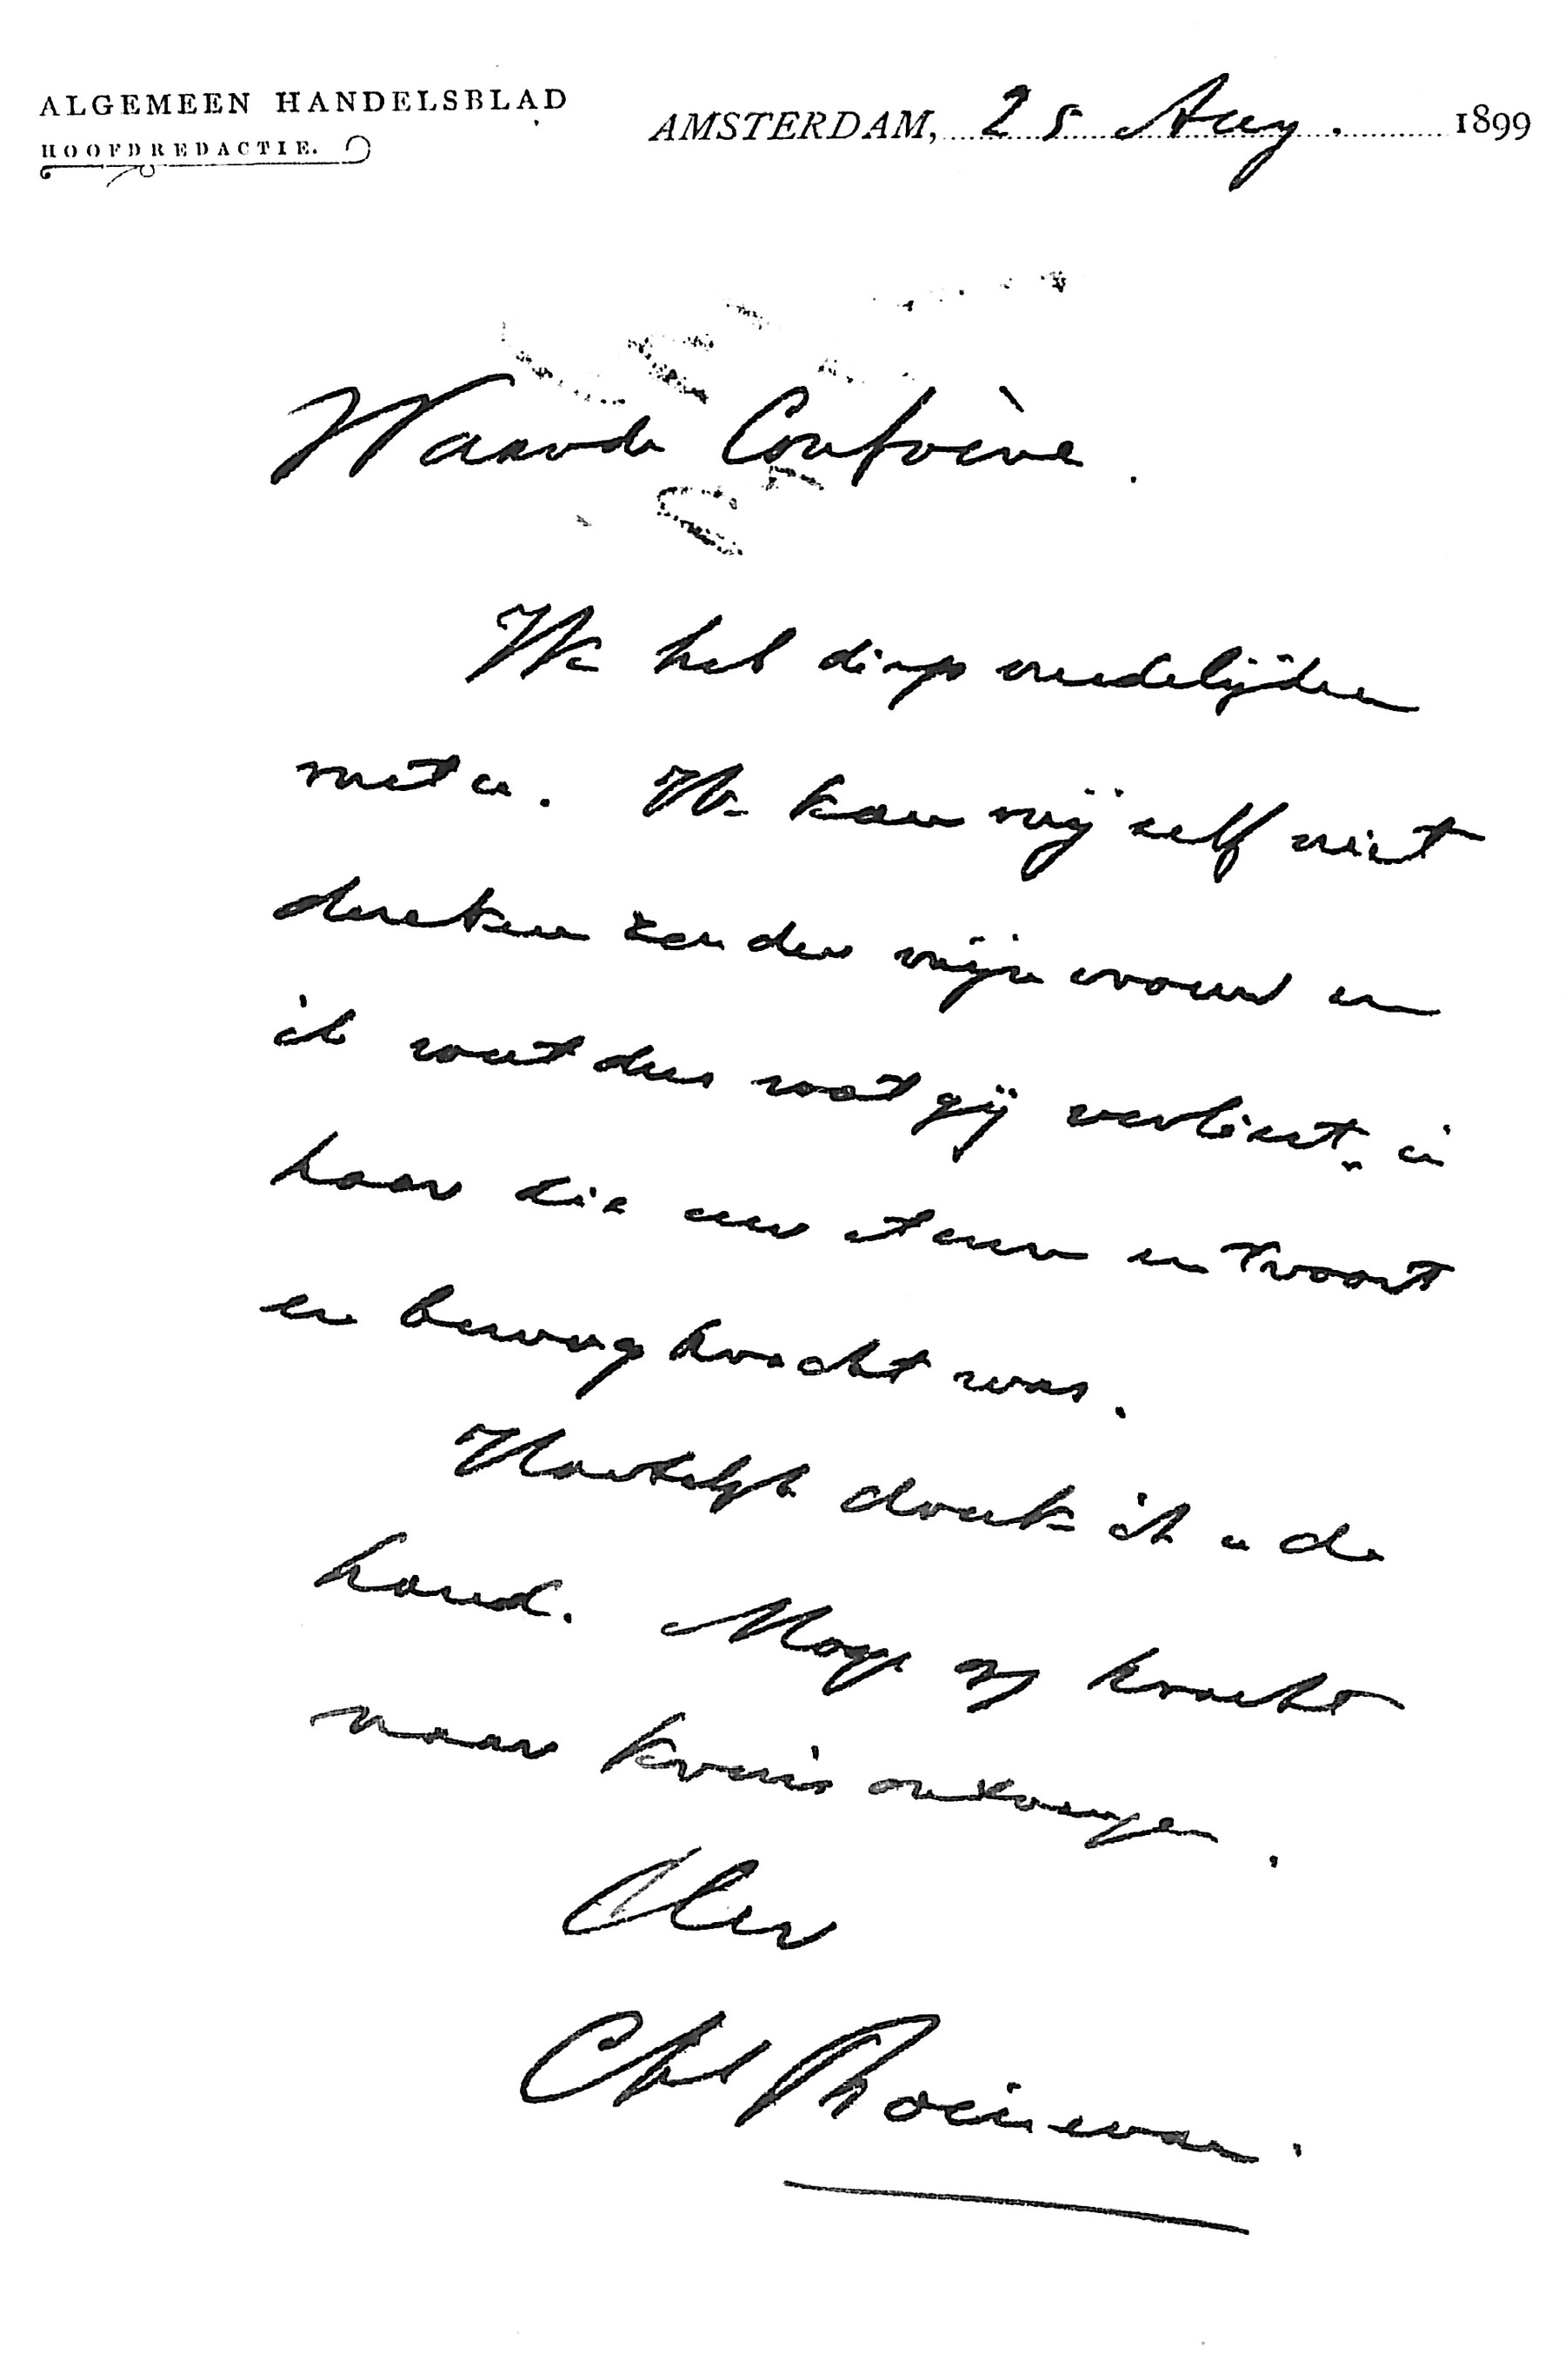 ALGEMEEN HANDELSBLAD
HOOFDREDACTIE.
AMSTERDAM, 25 Aug. 1899
Waarde Confrère.
Ik heb diep medelijden
met u. Ik kan mij zelf niet
denken zonder mijn vrouw en
ik weet dus wat gij verliest in
haar die uw steun en troost
en beweegkracht was.
Hartelijk druk ik u de
hand. Moge gij kracht
naar kruis ontvangen.
Uw
Chs Boissevain.